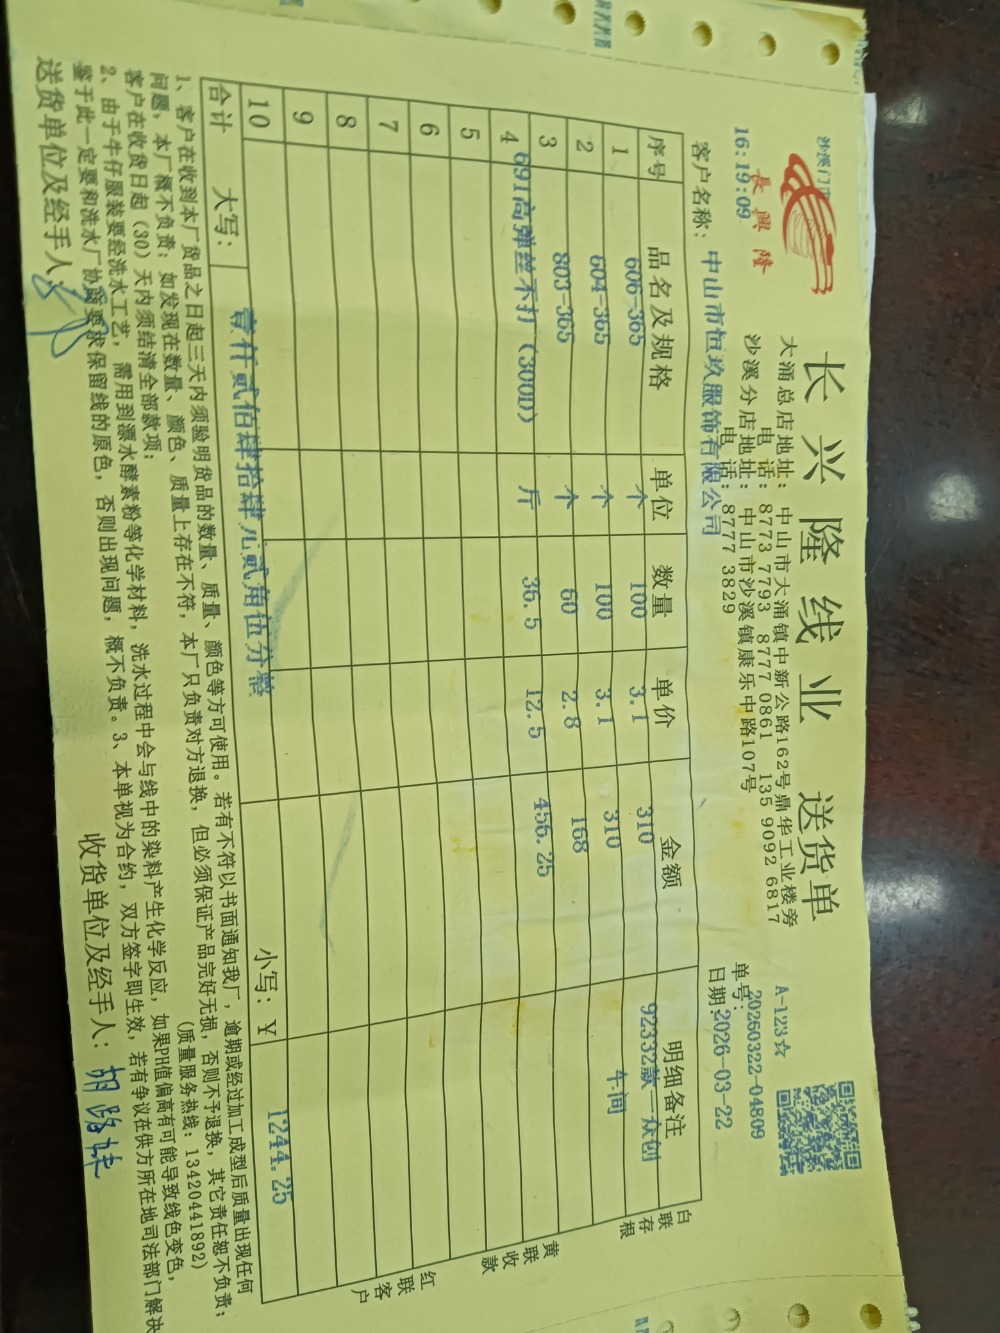 沙溪门市
長興隆
16:19:09
长兴隆线业 送货单
大涌总店地址: 中山市大涌镇中新公路162号鼎华工业楼旁
电 话: 8773 7793 8777 0861 135 9092 6817
沙溪分店地址: 中山市沙溪镇康乐中路107号
电 话: 8777 3829
A-123☆
单号: 20260322-04809
日期: 2026-03-22
客户名称: 中山市恒玖服饰有限公司
序号 品名及规格 单位 数量 单价 金额 明细备注
1 606-365 个 100 3.1 310 92332款一众创
2 604-365 个 100 3.1 310 车间
3 803-365 个 60 2.8 168
4 691高弹丝不打（300D） 斤 36.5 12.5 456.25
5
6
7
8
9
10
合计 大写: 壹仟贰佰肆拾肆元贰角伍分整 小写: ¥ 1244.25
白联存根
黄联收款
红联客户
1、客户在收到本厂货品之日起三天内须验明货品的数量、质量、颜色等方可使用。若有不符以书面通知我厂，逾期或经过加工成型后质量出现任何
问题，本厂概不负责；如发现在数量、颜色、质量上存在不符，本厂只负责对方退换，但必须保证产品完好无损，否则不予退换，其它责任恕不负责；
客户在收货日起（30）天内须结清全部款项； (质量服务热线: 13420441892)
2、由于牛仔服装要经洗水工艺，需用到漂水酵素粉等化学材料，洗水过程中会与线中的染料产生化学反应，如果PH值偏高有可能导致线色变色，
鉴于此一定要和洗水厂协商要求保留线的原色，否则出现问题，概不负责。3、本单视为合约，双方签字即生效，若有争议在供方所在地司法部门解决
送货单位及经手人: 收货单位及经手人: